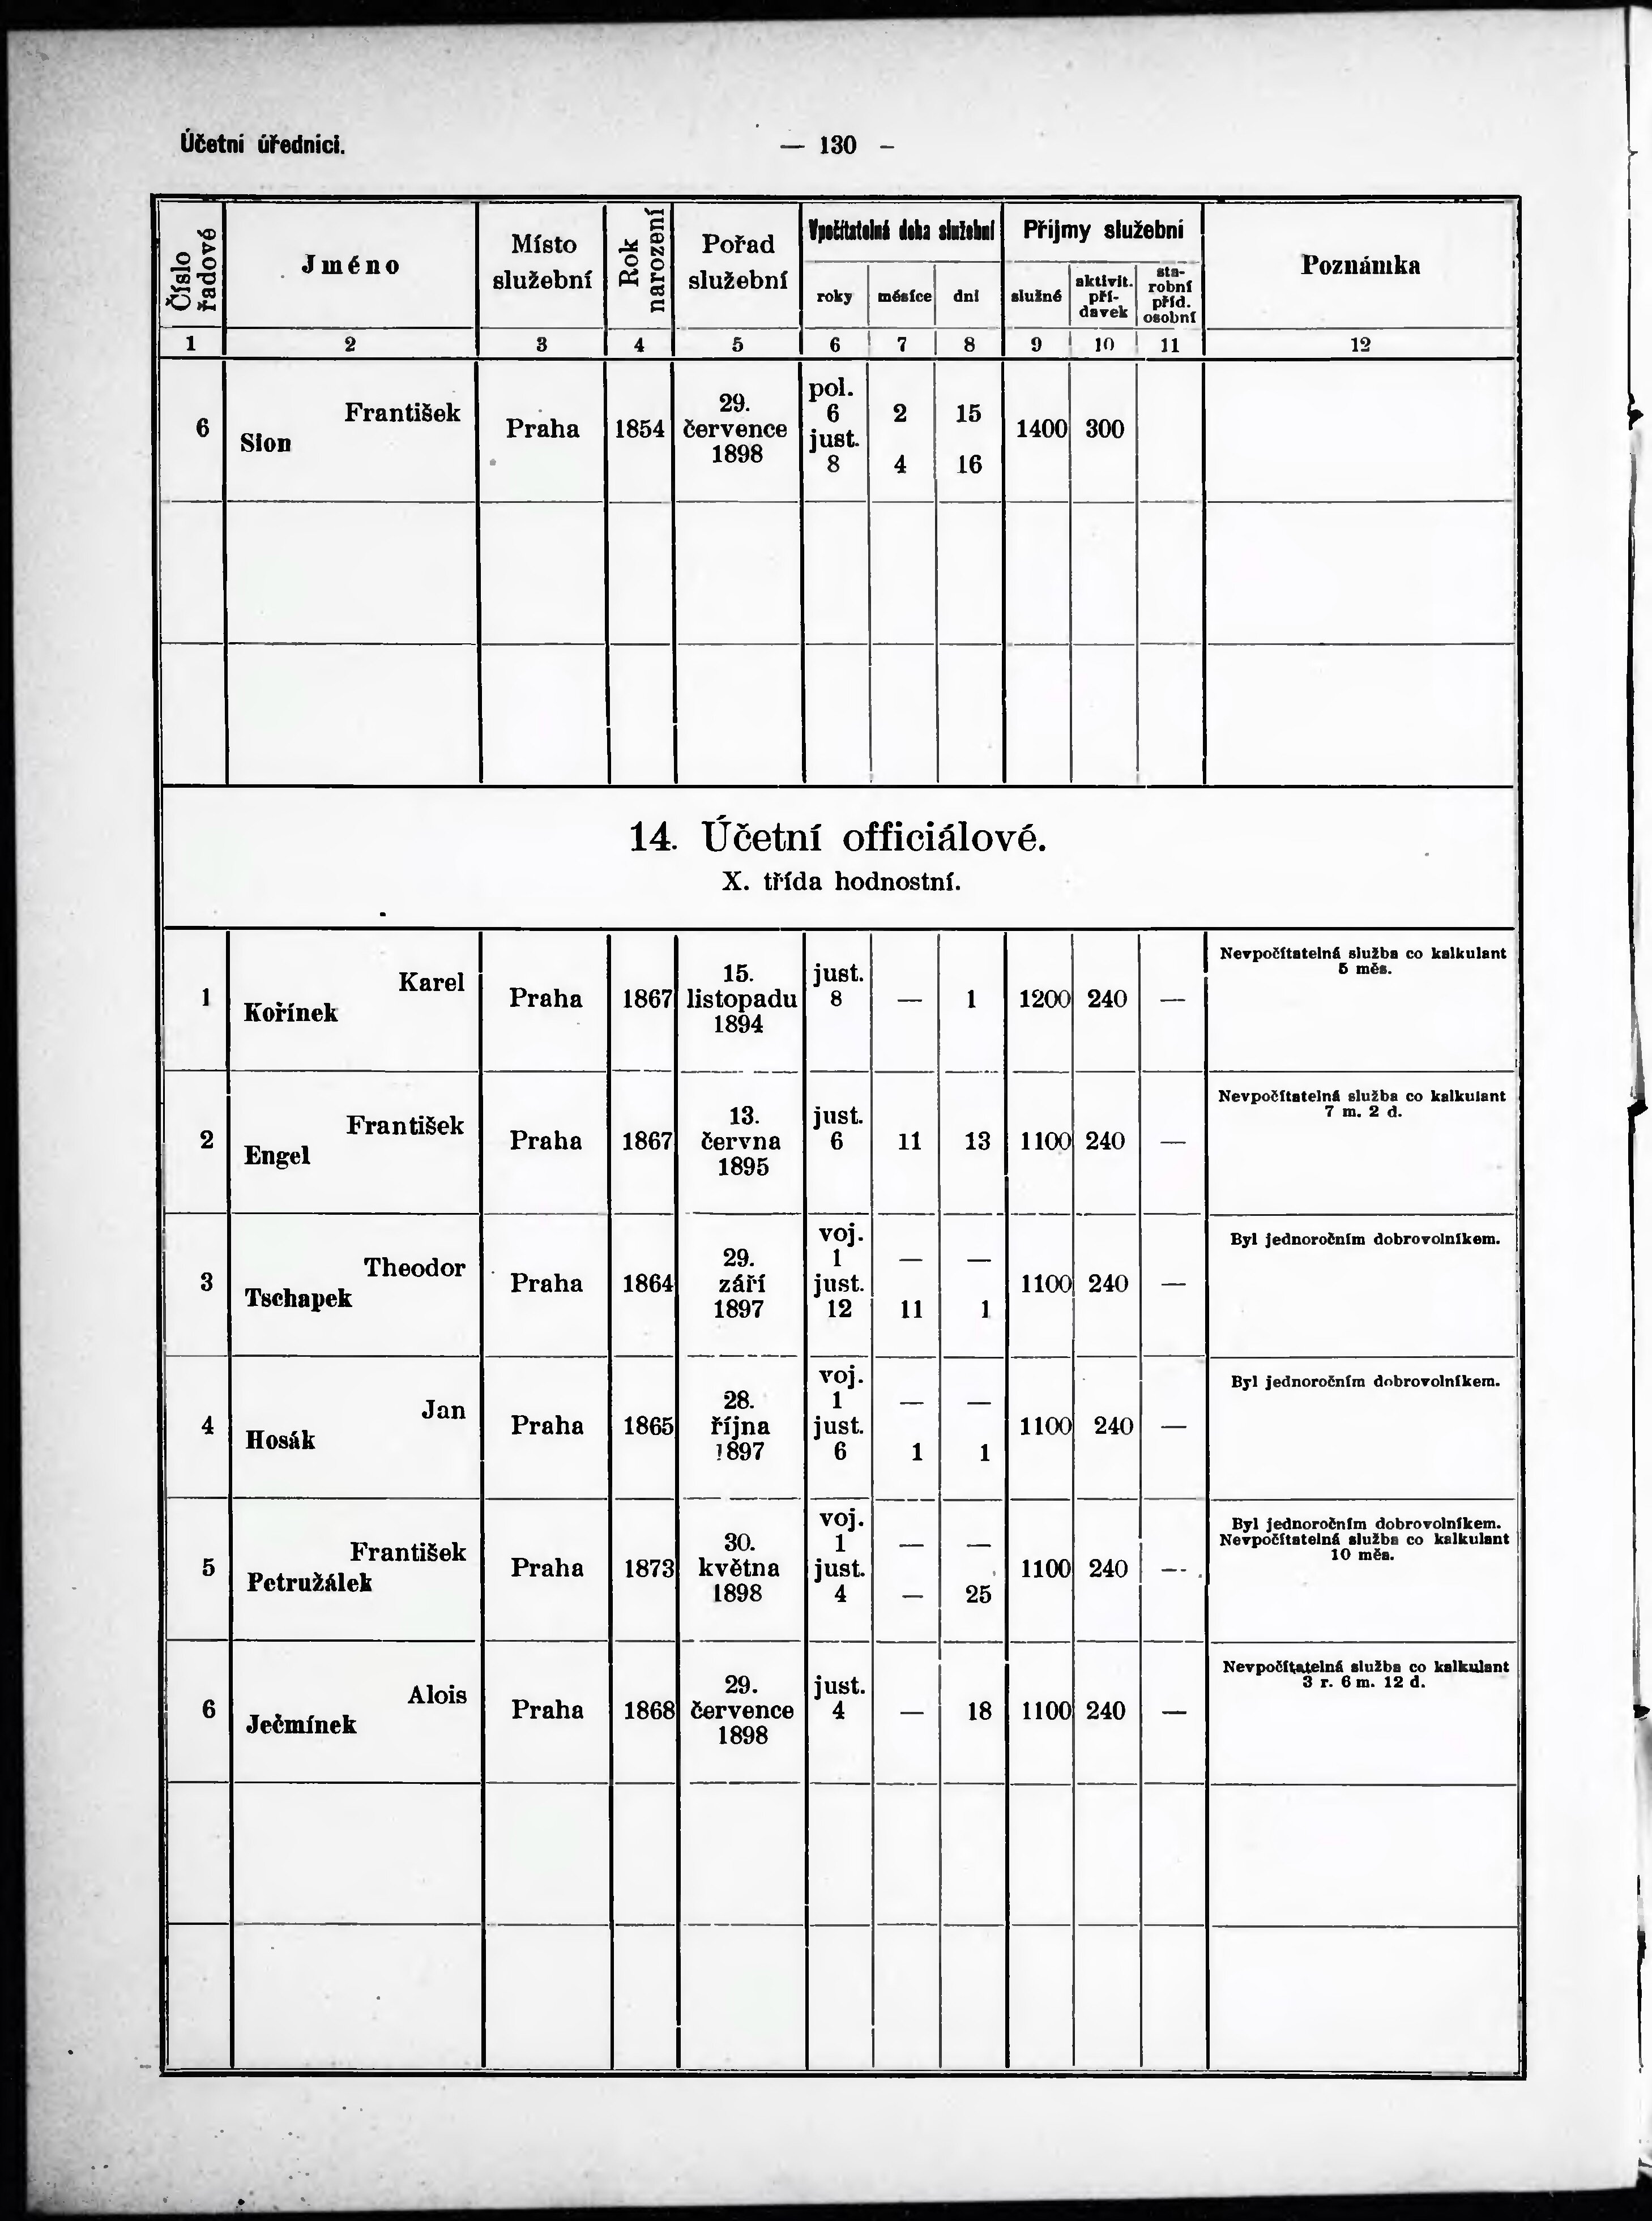 Účetní úředníci.
— 130 –
Číslo řadové
Jméno
Místo služební
Rok narození
Pořad služební
Vpočítatelná doba služební
Příjmy služební
Poznámka
roky
měsíce
dní
služné
aktivit. pří-davek
sta-robní příd. osobní
1 2 3 4 5 6 7 8 9 10 11 12
6 František Slon Praha 1854 29. července 1898 pol. 6 2 15 just. 8 4 16 1400 300
14. Účetní officiálové.
X. třída hodnostní.
1 Karel Kořínek Praha 1867 15. listopadu 1894 just. 8 — 1 1200 240 — Nevpočítatelná služba co kalkulant 5 měs.
2 František Engel Praha 1867 13. června 1895 just. 6 11 13 1100 240 — Nevpočítatelná služba co kalkulant 7 m. 2 d.
3 Theodor Tschapek Praha 1864 29. září 1897 voj. 1 — — just. 12 11 1 1100 240 — Byl jednoročním dobrovolníkem.
4 Jan Hosák Praha 1865 28. října 1897 voj. 1 — — just. 6 1 1 1100 240 — Byl jednoročním dobrovolníkem.
5 František Petružálek Praha 1873 30. května 1898 voj. 1 — — just. 4 — 25 1100 240 — Byl jednoročním dobrovolníkem. Nevpočítatelná služba co kalkulant 10 měs.
6 Alois Ječmínek Praha 1868 29. července 1898 just. 4 — 18 1100 240 — Nevpočítatelná služba co kalkulant 3 r. 6 m. 12 d.